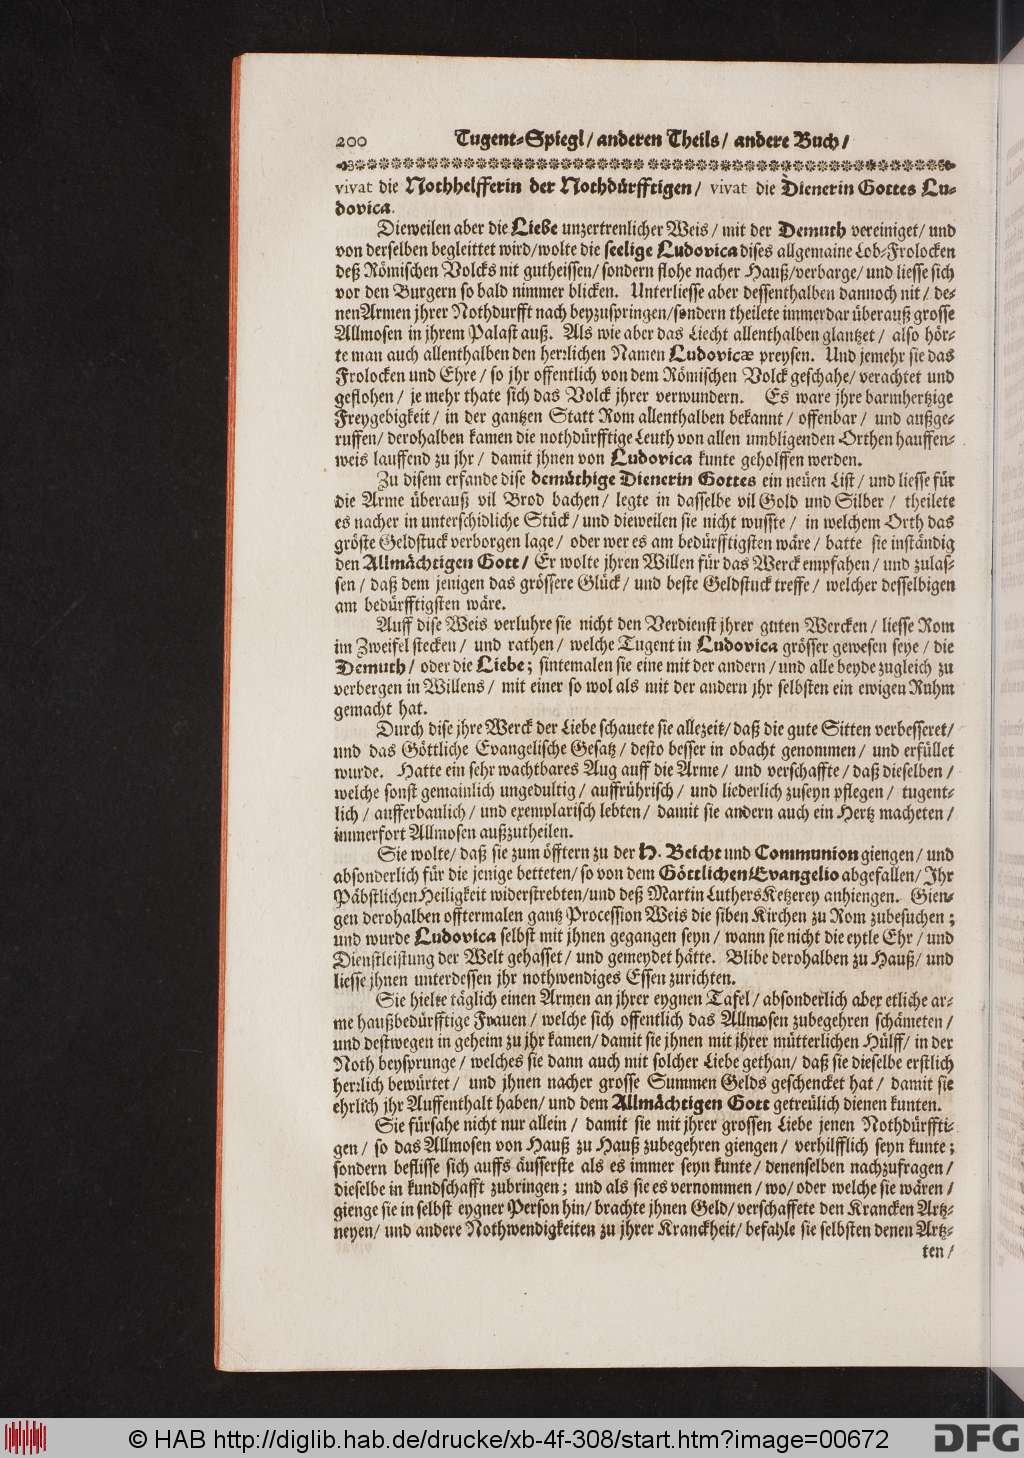 200 Tugent-Spiegl/ anderen Theils/ andere Buch/
vivat die Nothhelfferin der Nothdürfftigen/ vivat die Dienerin Gottes Lu-
dovica.
Dieweilen aber die Liebe unzertrenlicher Weis/ mit der Demuth vereiniget/ und
von derselben begleittet wird/ wolte die seelige Ludovica dises allgemaine Lob-Frolocken
deß Römischen Volcks nit gutheissen/ sondern flohe nacher Hauß/ verbarge/ und liesse sich
vor den Burgern so bald nimmer blicken. Unterliesse aber dessenthalben dannoch nit/ de-
nen Armen jhrer Nothdurfft nach beyzuspringen/ sondern theilete immerdar überauß grosse
Allmosen in ihrem Palast auß. Als wie aber das Liecht allenthalben glantzet/ also hör-
te man auch allenthalben den herꝛlichen Namen Ludovicæ preysen. Und jemehr sie das
Frolocken und Ehre/ so jhr offentlich von dem Römischen Volck geschahe/ verachtet und
geflohen/ je mehr thate sich das Volck jhrer verwundern. Es ware jhre barmhertzige
Freygebigkeit/ in der gantzen Statt Rom allenthalben bekannt/ offenbar/ und außge-
ruffen/ derohalben kamen die nothdürfftige Leuth von allen umbligenden Orthen hauffen-
weis lauffend zu jhr/ damit jhnen von Ludovica kunte geholffen werden.
Zu disem erfande dise demüthige Dienerin Gottes ein neüen List/ und liesse für
die Arme überauß vil Brod bachen/ legte in dasselbe vil Gold und Silber/ theilete
es nacher in unterschidliche Stück/ und dieweilen sie nicht wusste/ in welchem Orth das
gröste Geldstuck verborgen lage/ oder wer es am bedürfftigsten wäre/ batte sie inständig
den Allmächtigen Gott/ Er wolte jhren Willen für das Werck empfahen/ und zulas-
sen/ daß dem jenigen das grössere Glück/ und beste Geldstuck treffe/ welcher desselbigen
am bedürfftigsten wäre.
Auff dise Weis verluhre sie nicht den Verdienst jhrer guten Wercken/ liesse Rom
im Zweifel stecken/ und rathen/ welche Tugent in Ludovica grösser gewesen seye/ die
Demuth/ oder die Liebe; sintemalen sie eine mit der andern/ und alle beyde zugleich zu
verbergen in Willens/ mit einer so wol als mit der andern jhr selbsten ein ewigen Ruhm
gemacht hat.
Durch dise jhre Werck der Liebe schauete sie allezeit/ daß die gute Sitten verbesseret/
und das Göttliche Evangelische Gesatz/ desto besser in obacht genommen/ und erfüllet
wurde. Hatte ein sehr wachtbares Aug auff die Arme/ und verschaffte/ daß dieselben/
welche sonst gemainlich ungedultig/ auffrührisch/ und liederlich zuseyn pflegen/ tugent-
lich/ aufferbaulich/ und exemplarisch lebten/ damit sie andern auch ein Hertz macheten/
immerfort Allmosen außzutheilen.
Sie wolte/ daß sie zum öfftern zu der H. Beicht und Communion giengen/ und
absonderlich für die jenige betteten/ so von dem Göttlichen Evangelio abgefallen/ Jhr
Päbstlichen Heiligkeit widerstrebten/ und deß Martin Luthers Ketzerey anhiengen. Gien-
gen derohalben offtermalen gantz Procession Weis die siben Kirchen zu Rom zubesuchen;
und wurde Ludovica selbst mit jhnen gegangen seyn/ wann sie nicht die eytle Ehr/ und
Dienstleistung der Welt gehasset/ und gemeydet hätte. Blibe derohalben zu Hauß/ und
liesse jhnen unterdessen jhr nothwendiges Essen zurichten.
Sie hielte täglich einen Armen an jhrer eygnen Tafel/ absonderlich aber etliche ar-
me haußbedürfftige Frauen/ welche sich offentlich das Allmosen zubegehren schämeten/
und destwegen in geheim zu jhr kamen/ damit sie jhnen mit jhrer mütterlichen Hülff/ in der
Noth beysprunge/ welches sie dann auch mit solcher Liebe gethan/ daß sie dieselbe erstlich
herꝛlich bewürtet/ und jhnen nacher grosse Summen Gelds geschencket hat/ damit sie
ehrlich jhr Auffenthalt haben/ und dem Allmächtigen Gott getreülich dienen kunten.
Sie fürsahe nicht nur allein/ damit sie mit jhrer grossen Liebe jenen Nothdürffti-
gen/ so das Allmosen von Hauß zu Hauß zubegehren giengen/ verhilfflich seyn kunte;
sondern beflisse sich auffs äusserste als es immer seyn kunte/ denenselben nachzufragen/
dieselbe in kundschafft zubringen; und als sie es vernommen/ wo/ oder welche sie wären/
gienge sie in selbst eygner Person hin/ brachte jhnen Geld/ verschaffete den Krancken Artz-
neyen/ und andere Nothwendigkeiten zu jhrer Kranckheit/ befahle sie selbsten denen Artz-
ten/
© HAB http://diglib.hab.de/drucke/xb-4f-308/start.htm?image=00672
DFG